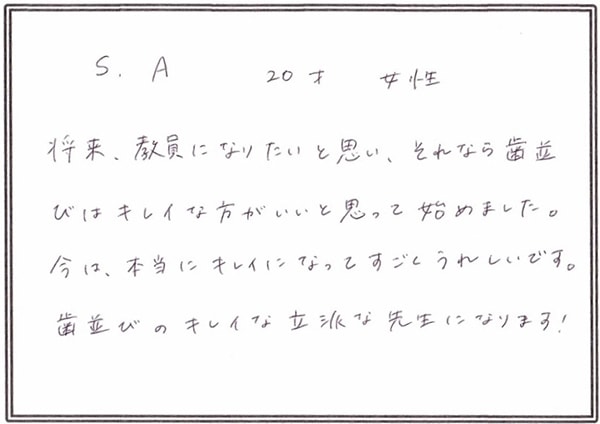 S. A 20才 女性
将来、教員になりたいと思い、それなら歯並
びはキレイな方がいいと思って始めました。
今は、本当にキレイになってすごくうれしいです。
歯並びのキレイな立派な先生になります!